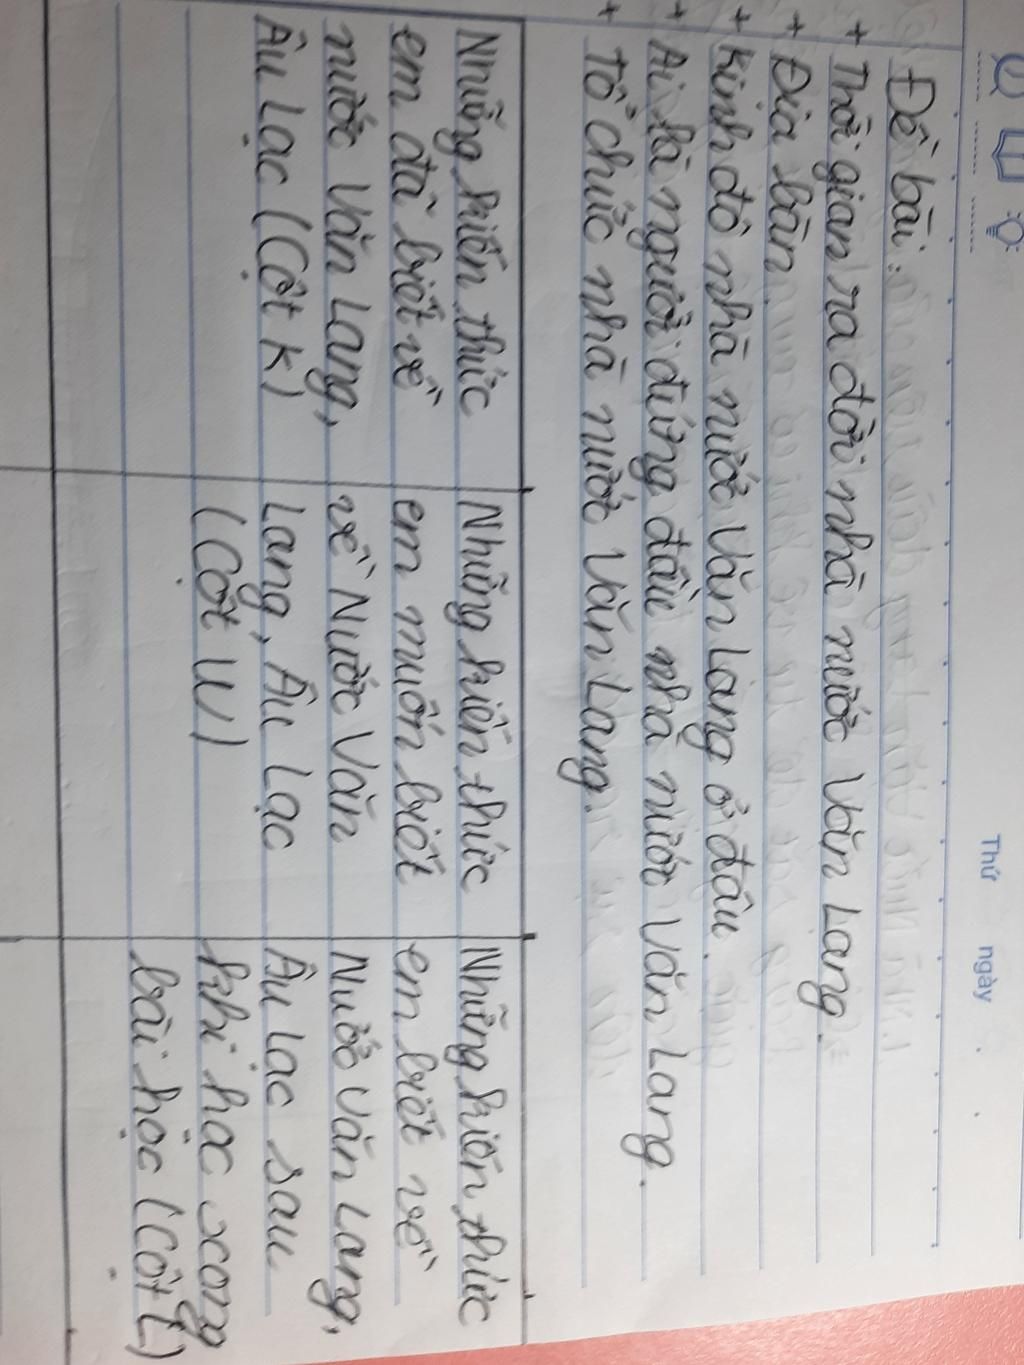 Thứ ngày
Đề bài:
+ Thời gian ra đời nhà nước Văn Lang.
+ Địa bàn.
+ Kinh đô nhà nước Văn Lang ở đâu.
+ Ai là người đứng đầu nhà nước Văn Lang.
+ Tổ chức nhà nước Văn Lang.
Những kiến thức
em đã biết về
nước Văn Lang,
Âu Lạc (Cột K)
Những kiến thức
em muốn biết
về Nước Văn
Lang, Âu Lạc
(Cột W)
Những kiến thức
em biết về
Nước Văn Lang,
Âu Lạc sau
khi học xong
bài học (Cột L)